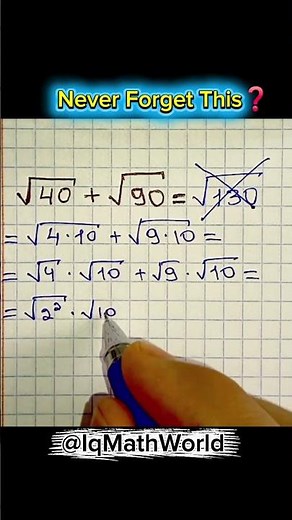 Never Forget This❓
√40 + √90 = √130
= √4·10 + √9·10 =
= √4 · √10 + √9 · √10 =
= √2² · √10
@IqMathWorld